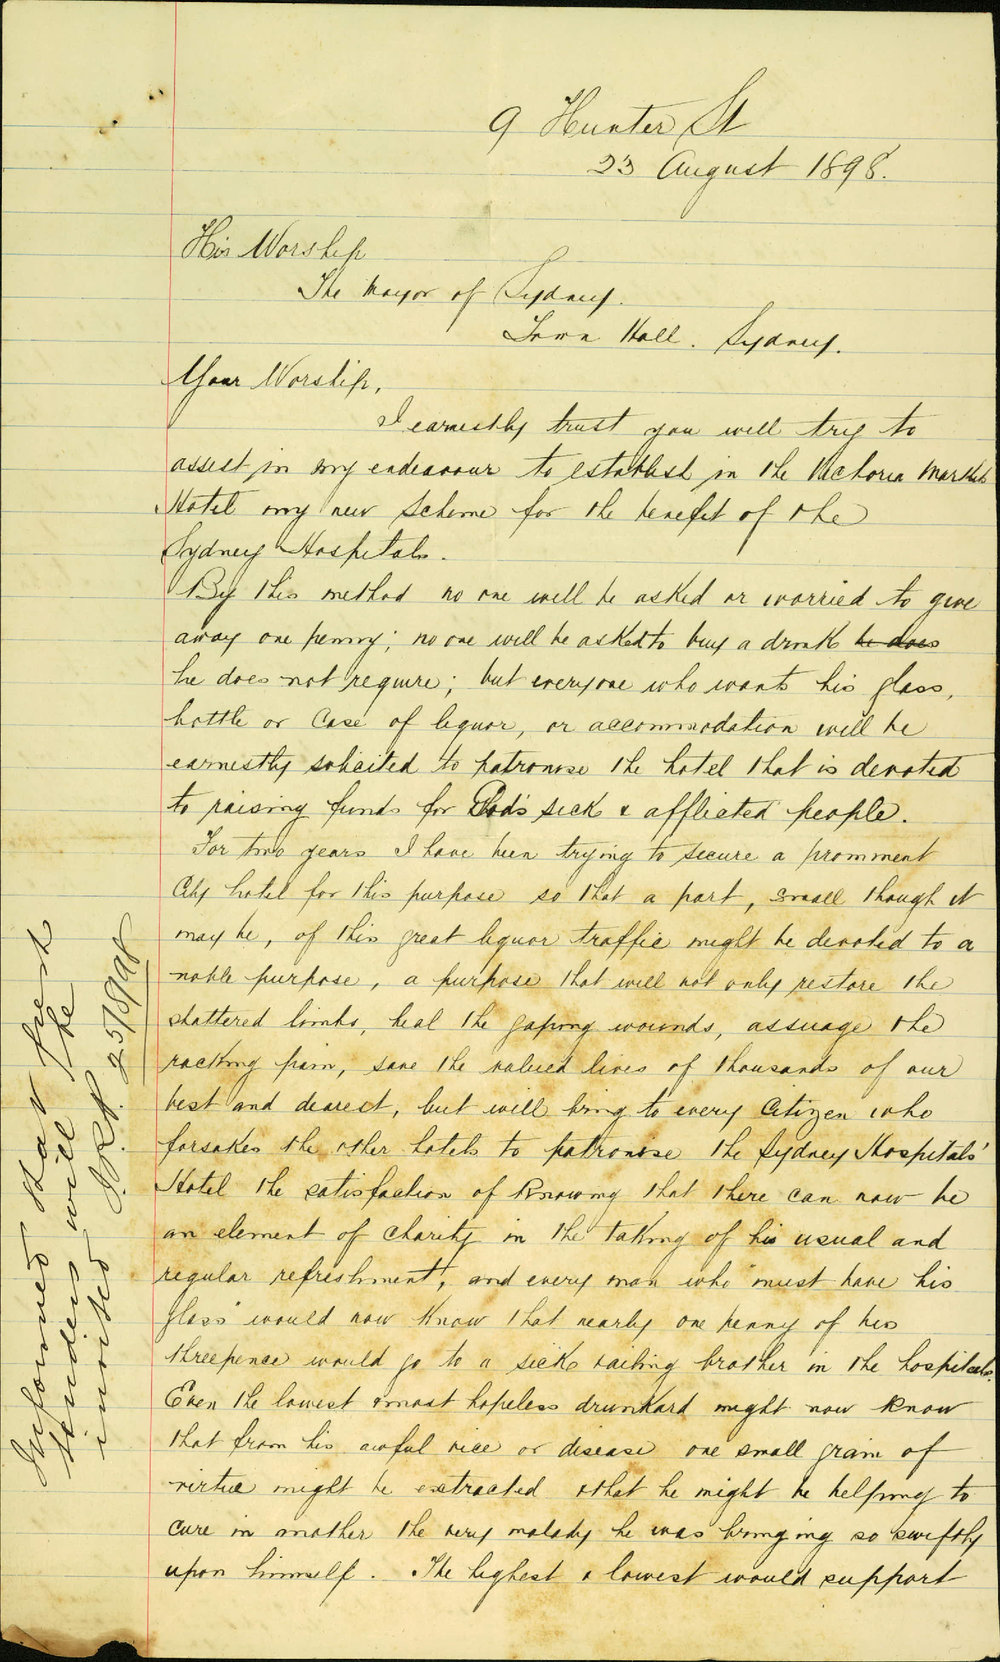 9 Hunter St
23 August 1898.
His Worship
The Mayor of Sydney.
Town Hall. Sydney.
Your Worship,
I earnestly trust you will try to
assist in my endeavour to establish in the Victoria Markets
Hotel my new scheme for the benefit of the
Sydney Hospitals.
By this method no one will be asked or worried to give
away one penny; no one will be asked to buy a drink he does
he does not require; but everyone who wants his glass,
bottle or case of liquor, or accommodation will be
earnestly solicited to patronise the hotel that is devoted
to raising funds for God's sick & afflicted people.
For two years I have been trying to secure a prominent
City hotel for this purpose so that a part, small though it
may be, of this great liquor traffic might be devoted to a
noble purpose, a purpose that will not only restore the
shattered limbs, heal the gaping wounds, assuage the
racking pain, save the valued lives of thousands of our
best and dearest, but will bring to every citizen who
forsakes the other hotels to patronise the Sydney Hospitals'
Hotel the satisfaction of knowing that there can now be
an element of charity in the taking of his usual and
regular refreshment, and every man who "must have his
glass" would now know that nearly one penny of his
threepence would go to a sick & ailing brother in the hospitals.
Even the lowest & most hopeless drunkard might now know
that from his awful vice or disease one small grain of
virtue might be extracted & that he might be helping to
cure in another the very malady he was bringing so swiftly
upon himself. The highest & lowest would support
Informed that fresh
tenders will be
invited
25/8/98